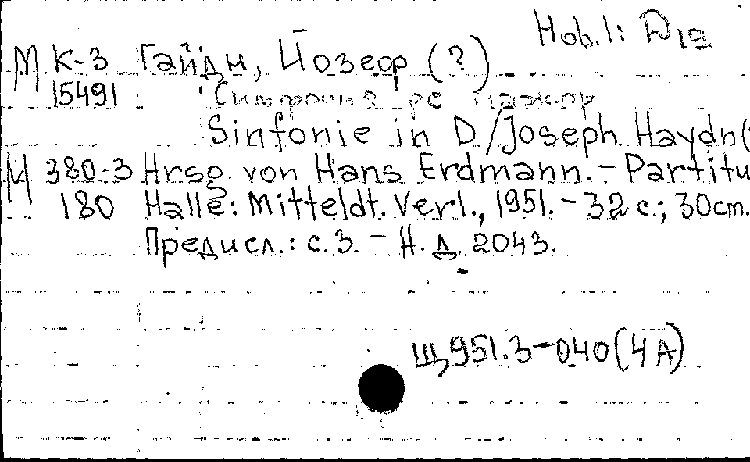 Hob.I: D19
М К-3 Гайдн, Йозеф (?)
15491 Симфония ре мажор
Sinfonie in D / Joseph Haydn (
М 380-3 Hrsg. von Hans Erdmann. - Partitu
180 Halle: Mitteldt. Verl., 1951. - 32 с.; 30cm.
Предисл.: с. 3. - Н. д. 2043.
Щ951.3-040(4А)